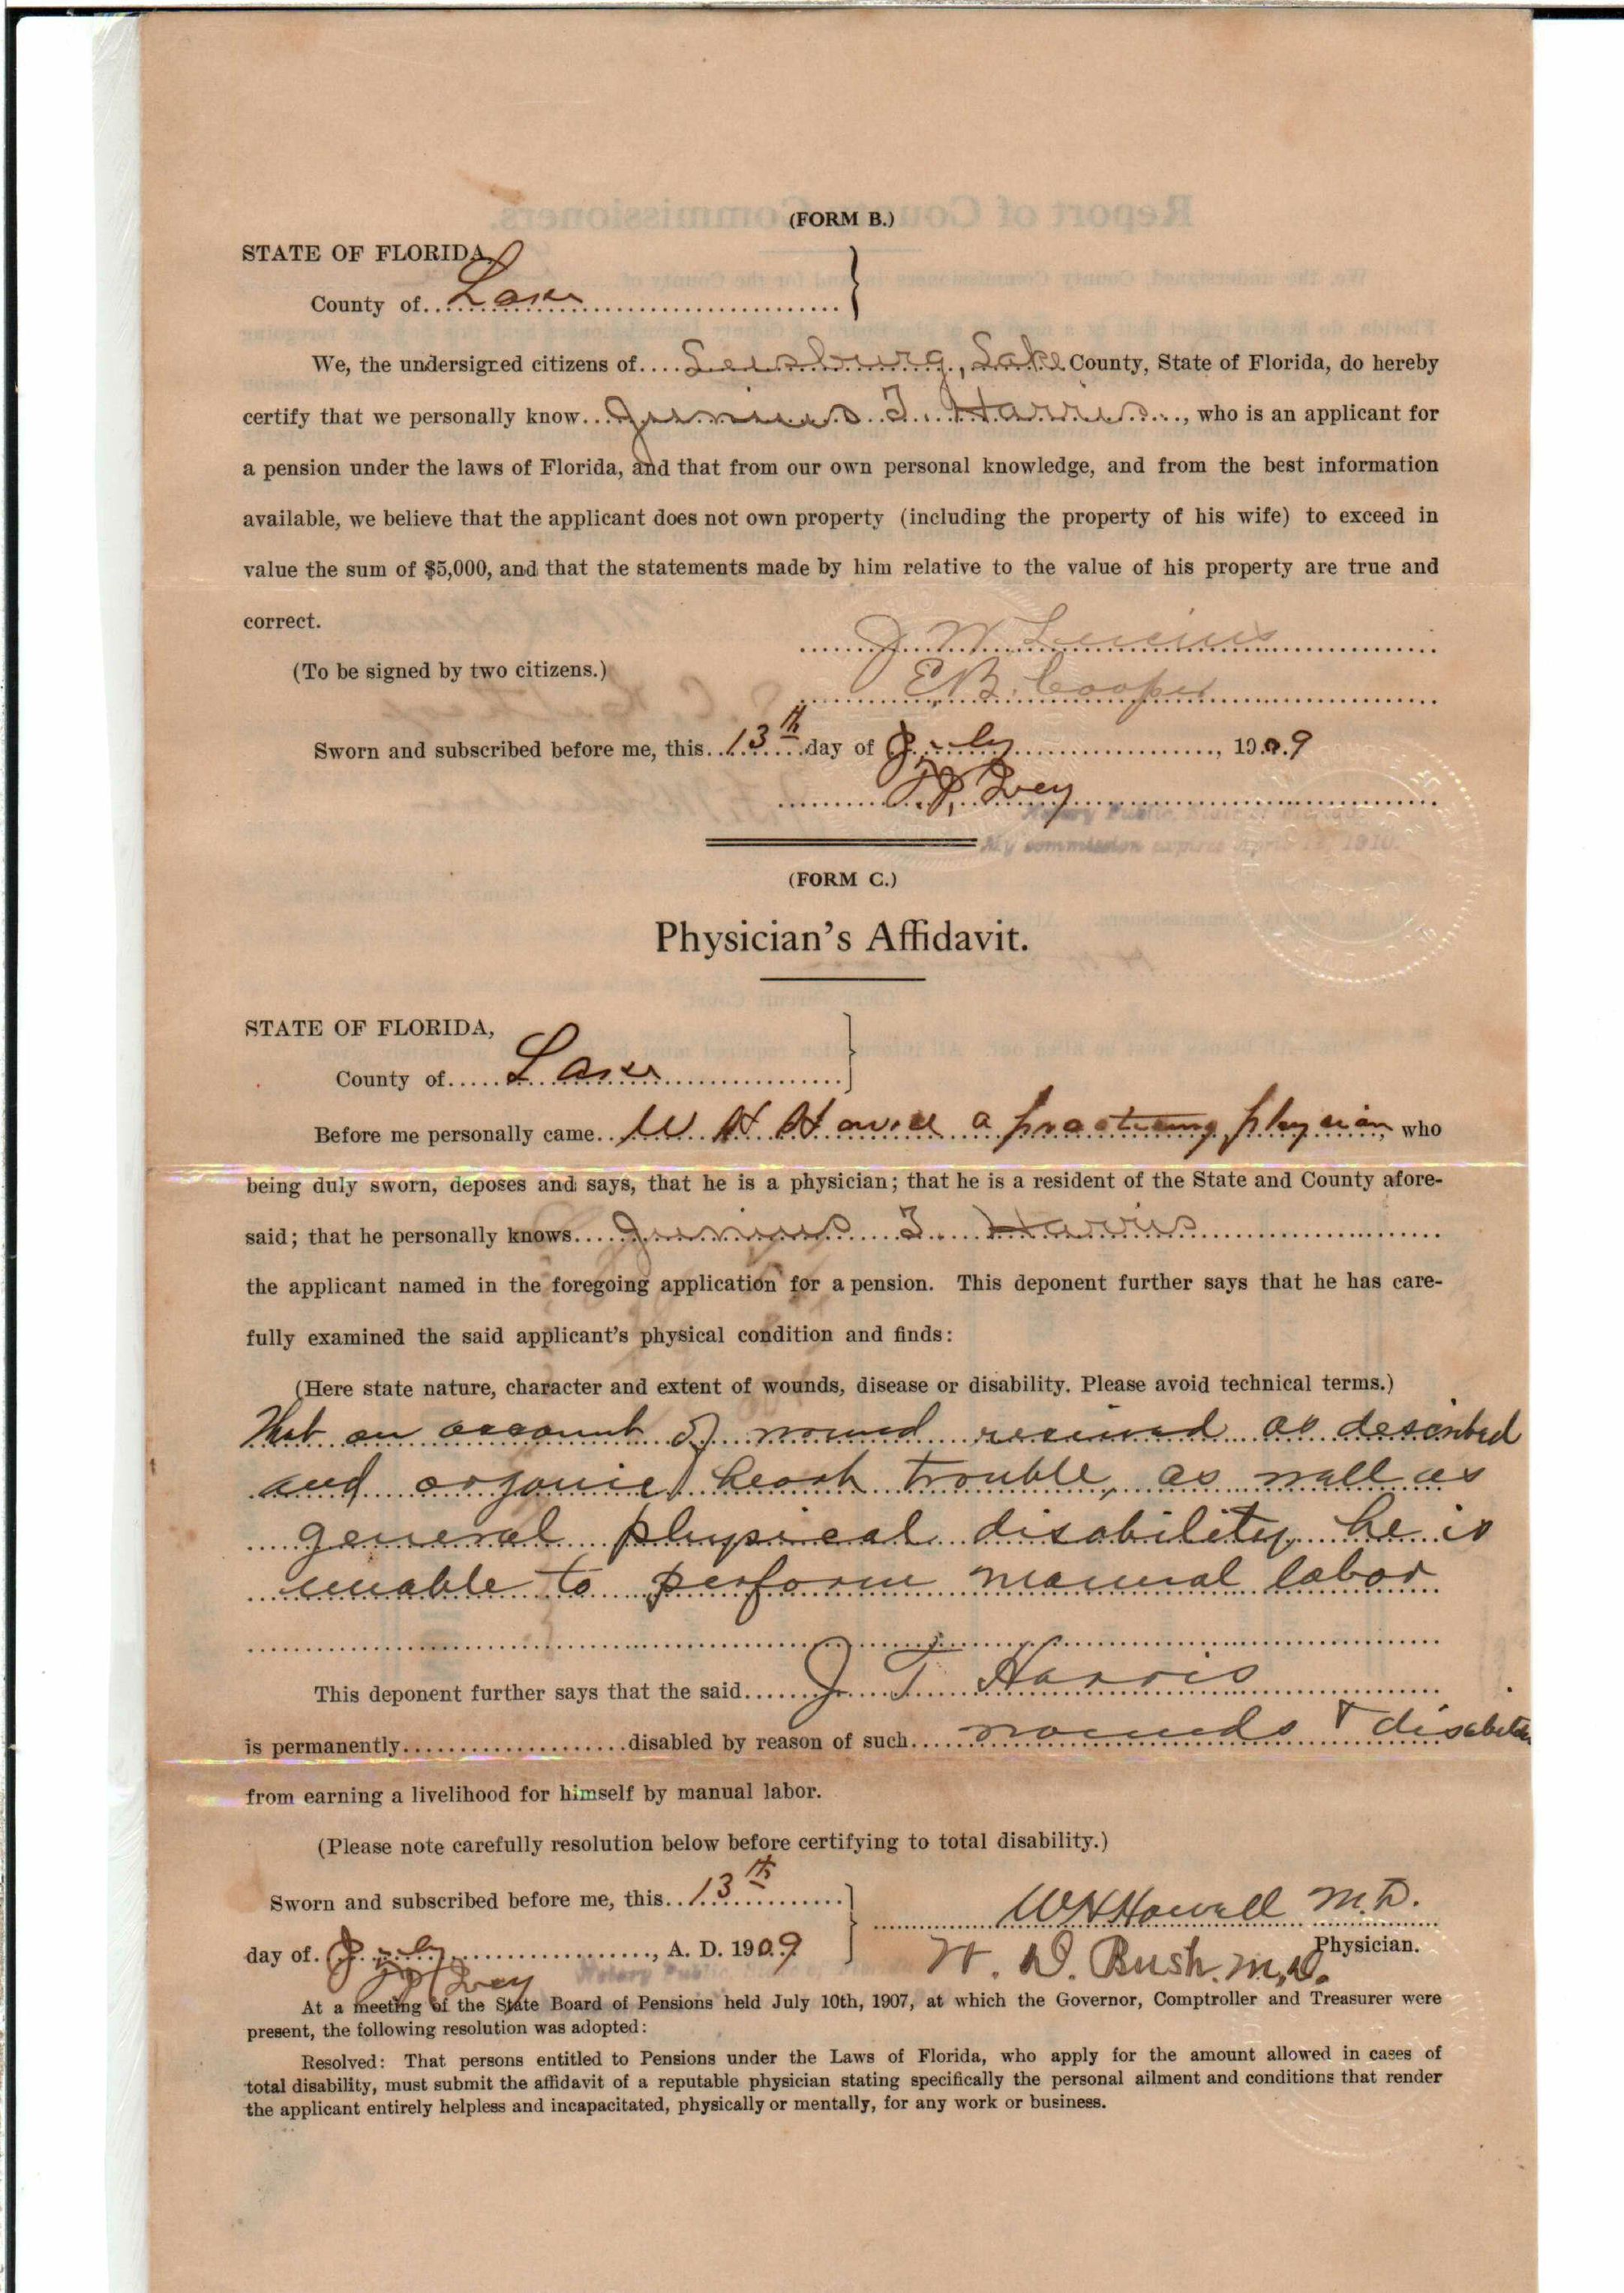 (FORM B.)
STATE OF FLORIDA,
County of Lake
We, the undersigned citizens of Leesburg, Lake County, State of Florida, do hereby
certify that we personally know Junius T. Harris, who is an applicant for
a pension under the laws of Florida, and that from our own personal knowledge, and from the best information
available, we believe that the applicant does not own property (including the property of his wife) to exceed in
value the sum of $5,000, and that the statements made by him relative to the value of his property are true and
correct.
J W
(To be signed by two citizens.)
E B. Cooper
Sworn and subscribed before me, this 13th day of July, 1909
Ivey
Notary Public, State of Florida.
My commission expires April 1910.
(FORM C.)
Physician's Affidavit.
STATE OF FLORIDA,
County of Lake
Before me personally came W H Howell a practicing physician, who
being duly sworn, deposes and says, that he is a physician; that he is a resident of the State and County afore-
said; that he personally knows Junius T. Harris
the applicant named in the foregoing application for a pension. This deponent further says that he has care-
fully examined the said applicant's physical condition and finds:
(Here state nature, character and extent of wounds, disease or disability. Please avoid technical terms.)
that on account of wound received as described
and organic heart trouble, as well as
general physical disability, he is
unable to perform manual labor
This deponent further says that the said J T. Harris
is permanently disabled by reason of such wounds & disability
from earning a livelihood for himself by manual labor.
(Please note carefully resolution below before certifying to total disability.)
Sworn and subscribed before me, this 13th
W H Howell M.D.
day of July, A. D. 1909
Physician.
W. D. Bush. M.D.
Ivey Notary Public, State of Florida
At a meeting of the State Board of Pensions held July 10th, 1907, at which the Governor, Comptroller and Treasurer were
present, the following resolution was adopted:
Resolved: That persons entitled to Pensions under the Laws of Florida, who apply for the amount allowed in cases of
total disability, must submit the affidavit of a reputable physician stating specifically the personal ailment and conditions that render
the applicant entirely helpless and incapacitated, physically or mentally, for any work or business.